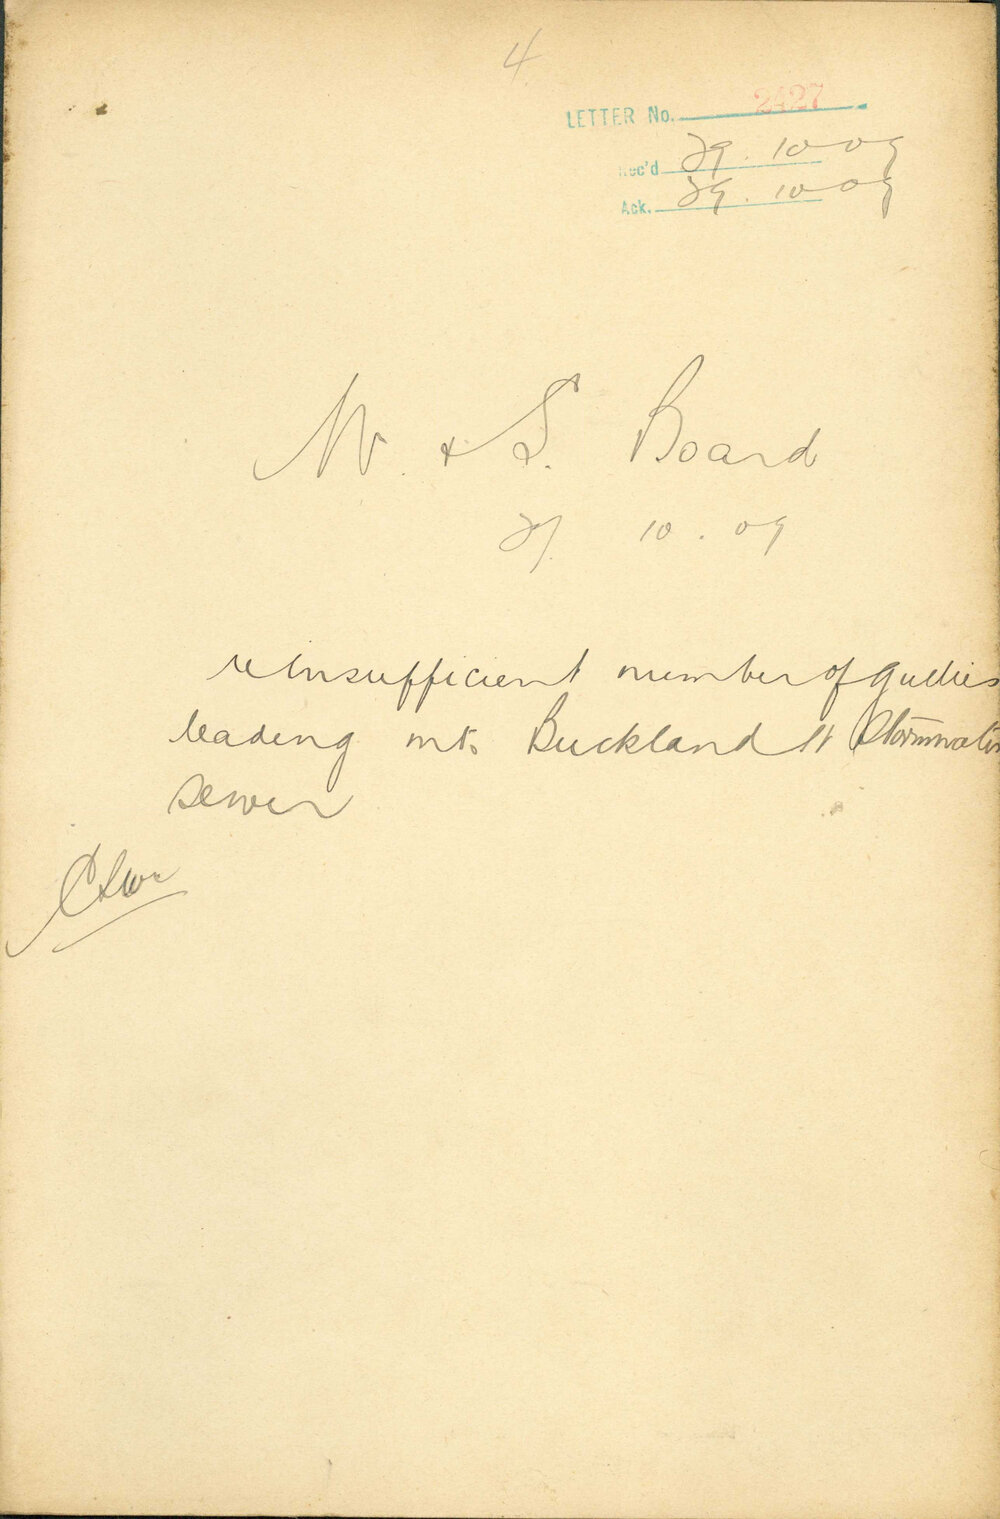 4
LETTER No. 2427
Rec'd 29. 10 09
Ack. 29. 10 09
W. & S. Board
27. 10. 09
re insufficient number of gullies
leading into Buckland St Stormwater
sewer